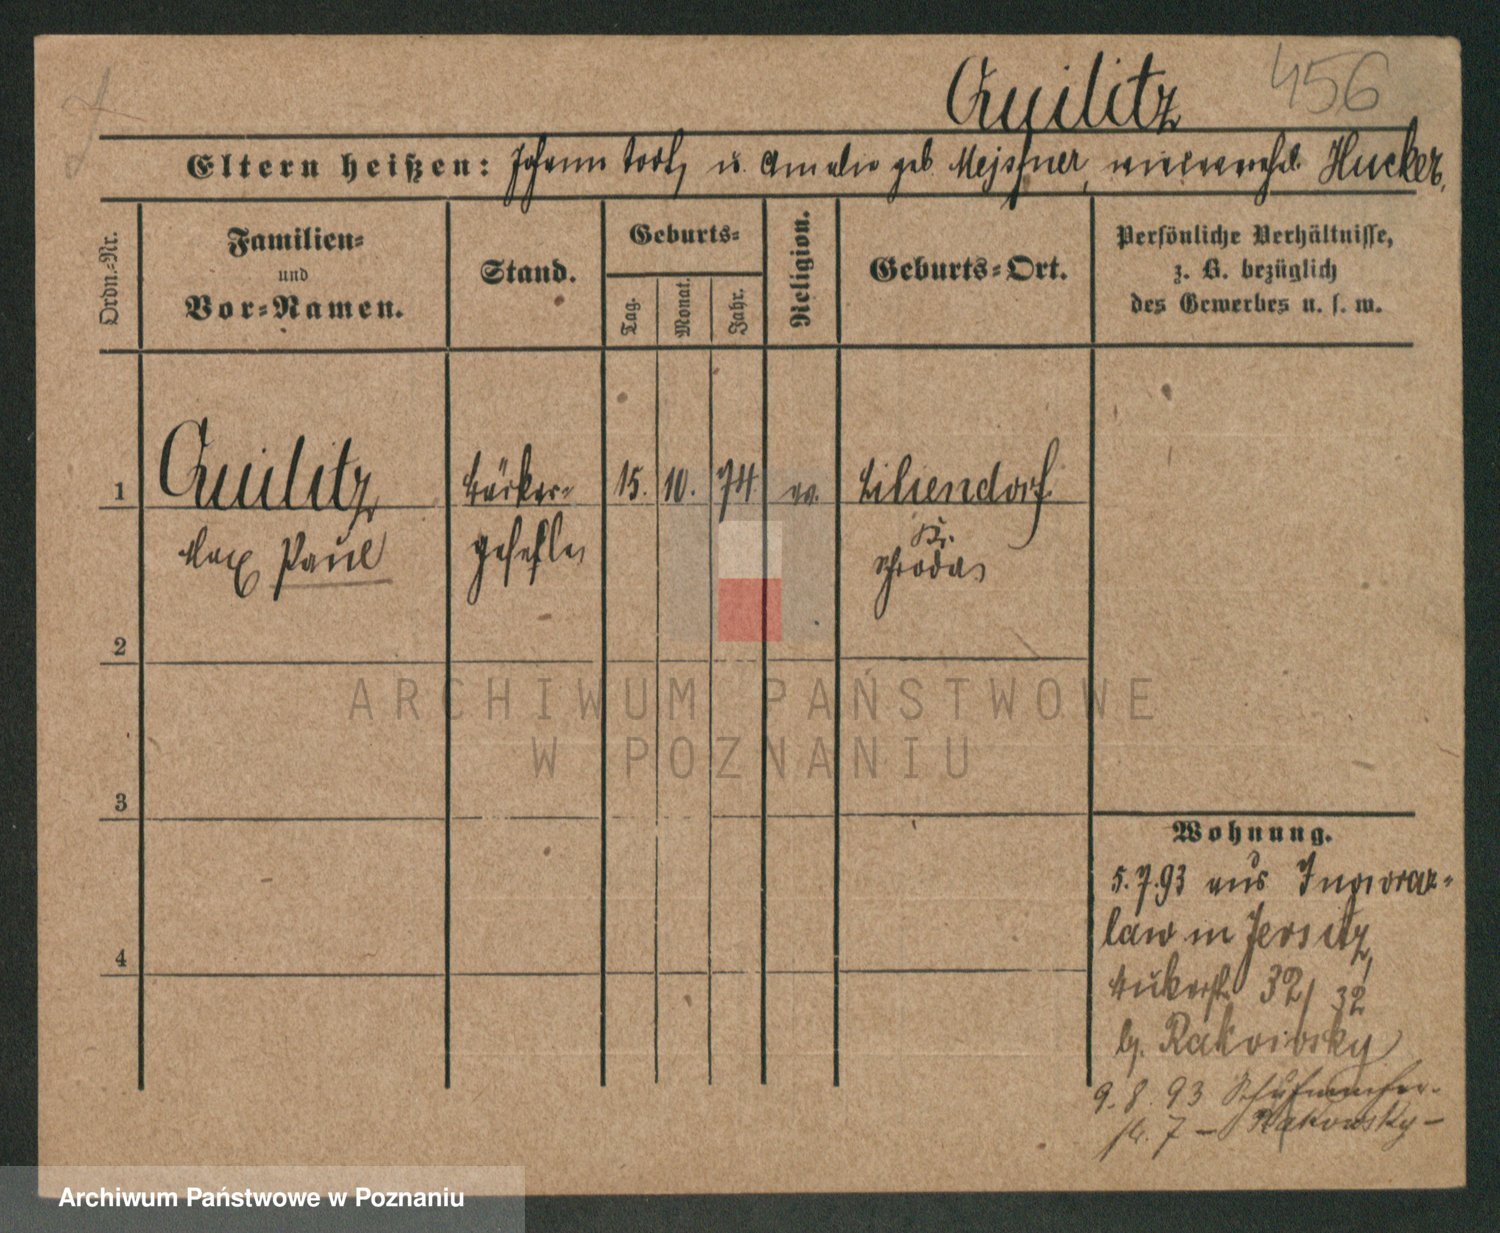 Quilitz 456
Eltern heißen: Johann todt, u. Amalie geb. Mejsfner, Hucker,
Ordn.-Nr.
Familien-
und
Vor-Namen.
Stand.
Geburts-
Tag.
Monat.
Jahr.
Religion.
Geburts-Ort.
Persönliche Verhältnisse,
z. B. bezüglich
des Gewerbes u. s. w.
1 Quilitz Bäcker- 15. 10. 74 ev. Liliendorf
Max Paul geselle Kr.
Schroda
2
3
4
Wohnung.
5.7.93 aus Inowraz-
law in Jersitz,
32/32
b. Rakowsky
9.8.93
7 – Rakowsky –
ARCHIWUM PAŃSTWOWE
W POZNANIU
Archiwum Państwowe w Poznaniu